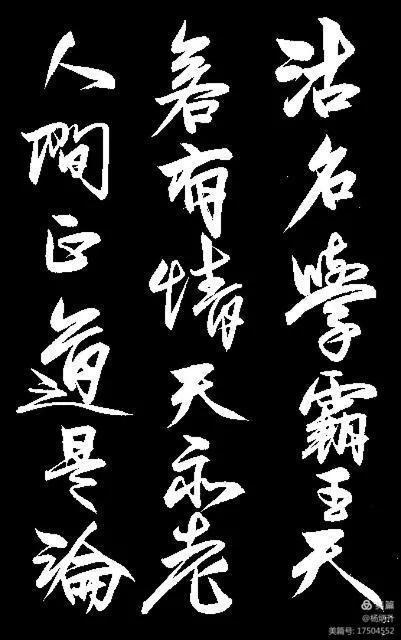 沽名學霸王天
若有情天亦老
人間正道是
美篇
美篇号: 17504552